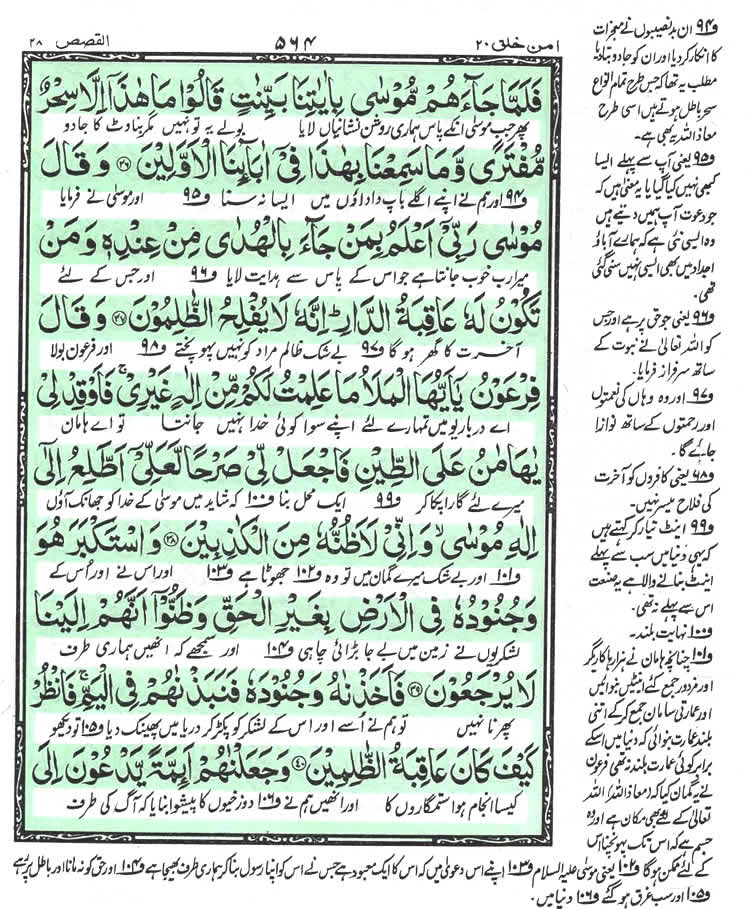 امن خلق ۲۰
۵۶۴
القصص ۲۸
فَلَمَّا جَآءَهُمْ مُّوْسٰى بِاٰيٰتِنَا بَيِّنٰتٍ قَالُوْا مَا هٰذَآ اِلَّا سِحْرٌ
پھر جب موسیٰ انکے پاس ہماری روشن نشانیاں لایا بولے یہ تو نہیں مگر بناوٹ کا جادو
مُّفْتَرًى وَّمَا سَمِعْنَا بِهٰذَا فِيْٓ اٰبَآئِنَا الْاَوَّلِيْنَ ۳۶ وَقَالَ
و۹۴ اور ہم نے اپنے اگلے باپ داداؤں میں ایسا نہ سنا و۹۵ اور موسیٰ نے فرمایا
مُوْسٰى رَبِّيْٓ اَعْلَمُ بِمَنْ جَآءَ بِالْهُدٰى مِنْ عِنْدِهٖ وَمَنْ
میرا رب خوب جانتا ہے جو اس کے پاس سے ہدایت لایا و۹۶ اور جس کے لئے
تَكُوْنُ لَهٗ عَاقِبَةُ الدَّارِ ؕ اِنَّهٗ لَا يُفْلِحُ الظّٰلِمُوْنَ ۳۷ وَقَالَ
آخرت کا گھر ہو گا و۹۷ بے شک ظالم مراد کو نہیں پہونچتے و۹۸ اور فرعون بولا
فِرْعَوْنُ يٰٓاَيُّهَا الْمَلَاُ مَا عَلِمْتُ لَكُمْ مِّنْ اِلٰهٍ غَيْرِيْ ۚ فَاَوْقِدْ لِيْ
اے درباریو میں تمہارے لئے اپنے سوا کوئی خدا نہیں جانتا تو اے ہامان
يٰهَامٰنُ عَلَى الطِّيْنِ فَاجْعَلْ لِّيْ صَرْحًا لَّعَلِّيْٓ اَطَّلِعُ اِلٰٓى
میرے لئے گارا پکا کر و۹۹ ایک محل بنا و۱۰۰ کہ شاید میں موسیٰ کے خدا کو جھانک آؤں
اِلٰهِ مُوْسٰى ۙ وَاِنِّيْ لَاَظُنُّهٗ مِنَ الْكٰذِبِيْنَ ۳۸ وَاسْتَكْبَرَ هُوَ
و۱۰۱ اور بے شک میرے گمان میں تو وہ و۱۰۲ جھوٹا ہے و۱۰۳ اور اس نے اور اُس کے
وَجُنُوْدُهٗ فِي الْاَرْضِ بِغَيْرِ الْحَقِّ وَظَنُّوْٓا اَنَّهُمْ اِلَيْنَا
لشکریوں نے زمین میں بے جا بڑائی چاہی و۱۰۴ اور سمجھے کہ انھیں ہماری طرف
لَا يُرْجَعُوْنَ ۳۹ فَاَخَذْنٰهُ وَجُنُوْدَهٗ فَنَبَذْنٰهُمْ فِي الْيَمِّ ۚ فَانْظُرْ
پھرنا نہیں تو ہم نے اُسے اور اس کے لشکر کو پکڑ کر دریا میں پھینک دیا و۱۰۵ تو دیکھو
كَيْفَ كَانَ عَاقِبَةُ الظّٰلِمِيْنَ ۴۰ وَجَعَلْنٰهُمْ اَئِمَّةً يَّدْعُوْنَ اِلَى
کیسا انجام ہوا ستمگاروں کا اور انھیں ہم نے و۱۰۶ دوزخیوں کا پیشوا بنایا کہ آگ کی طرف
و۹۴ ان بدنصیبوں نے معجزات
کا انکار کر دیا اور ان کو جادو بتا دیا
مطلب یہ تھا کہ جس طرح تمام انواع
سحر باطل ہوتے ہیں اسی طرح
معاذ اللہ یہ بھی ہے۔
و۹۵ یعنی آپ سے پہلے ایسا
کبھی نہیں کیا گیا یا یہ معنی ہیں کہ
جو دعوت آپ ہمیں دیتے ہیں
وہ ایسی نئی ہے کہ ہمارے آباؤ
اجداد میں بھی ایسی نہیں سنی گئی
تھی۔
و۹۶ یعنی جو حق پر ہے اور جس
کو اللہ تعالیٰ نے نبوت کے
ساتھ سرفراز فرمایا۔
و۹۷ اور وہ وہاں کی نعمتوں
اور رحمتوں کے ساتھ نوازا
جائے گا۔
و۶۸ یعنی کافروں کو آخرت
کی فلاح میسر نہیں۔
و۹۹ اینٹ تیار کر کہتے ہیں
کہ یہی دنیا میں سب سے پہلے
اینٹ بنانے والا ہے یہ صنعت
اس سے پہلے نہ تھی۔
و۱۰۰ نہایت بلند۔
و۱۰۱ چنانچہ ہامان نے ہزارہا کاریگر
اور مزدور جمع کئے اینٹیں بنوائیں
اور عمارتی سامان جمع کر کے اتنی
بلند عمارت بنوائی کہ دنیا میں اسکے
برابر کوئی عمارت بلند نہ تھی فرعون
نے یہ گمان کیا کہ (معاذ اللہ) اللہ
تعالیٰ کے لئے بھی مکان ہے اور وہ
جسم ہے کہ اس تک پہونچنا اس
کے لئے ممکن ہو گا و۱۰۲ یعنی موسیٰ علیہ السلام و۱۰۳ اپنے اس دعویٰ میں کہ اس کا ایک معبود ہے جس نے اس کو اپنا رسول بنا کر ہماری طرف بھیجا ہے و۱۰۴ اور حق کو نہ مانا اور باطل پر رہے
و۱۰۵ اور سب غرق ہو گئے و۱۰۶ دنیا میں۔